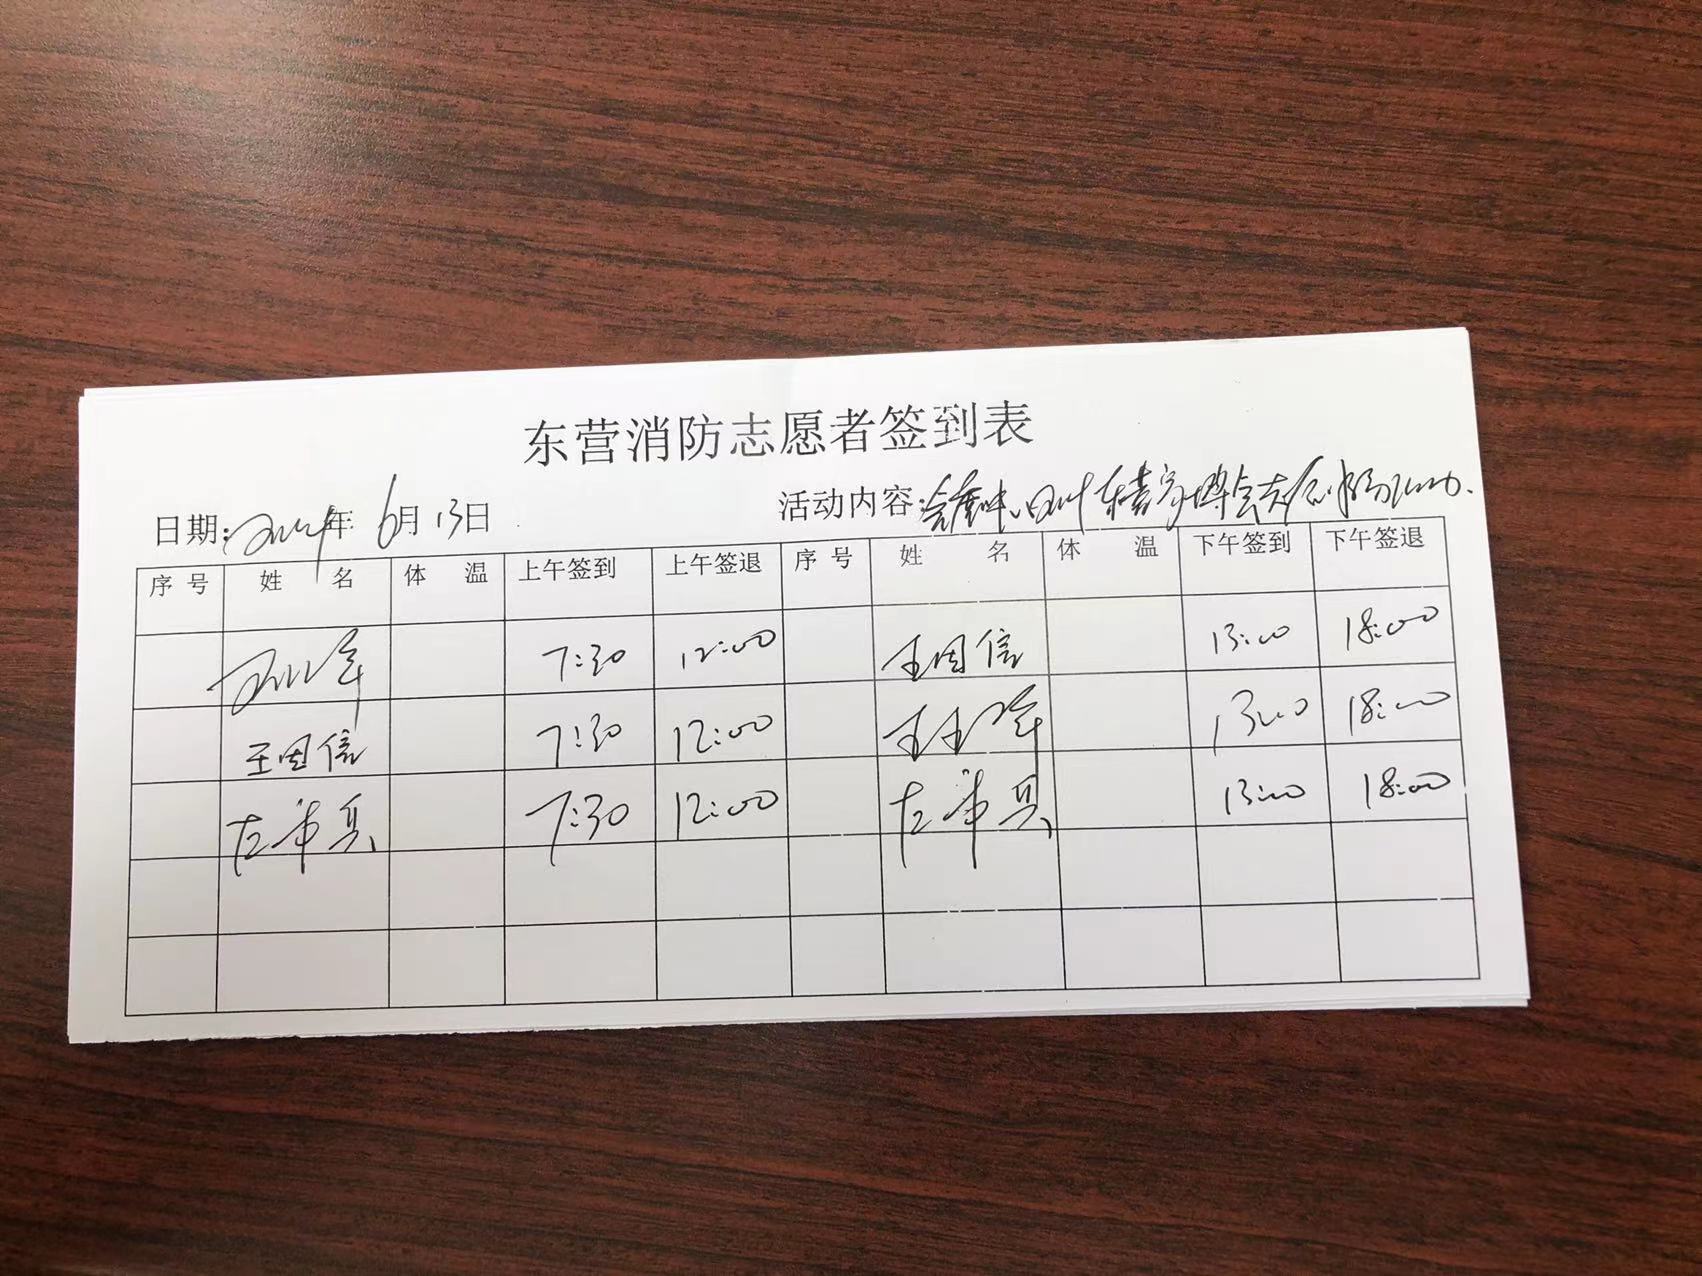 东营消防志愿者签到表
日期: 2024年 6月 13日 活动内容:
序号 姓名 体温 上午签到 上午签退 序号 姓名 体温 下午签到 下午签退
7:30 12:00 王国信 13:00 18:00
王国信 7:30 12:00 13:00 18:00
左希兵 7:30 12:00 左希兵 13:00 18:00